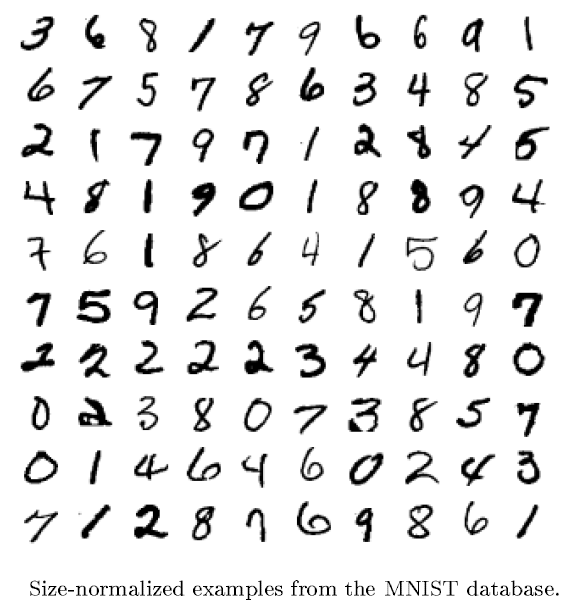 3 6 8 1 7 9 6 6 9 1
6 7 5 7 8 6 3 4 8 5
2 1 7 9 7 1 2 8 4 5
4 8 1 9 0 1 8 8 9 4
7 6 1 8 6 4 1 5 6 0
7 5 9 2 6 5 8 1 9 7
2 2 2 2 2 3 4 4 8 0
0 2 3 8 0 7 3 8 5 7
0 1 4 6 4 6 0 2 4 3
7 1 2 8 7 6 9 8 6 1
Size-normalized examples from the MNIST database.